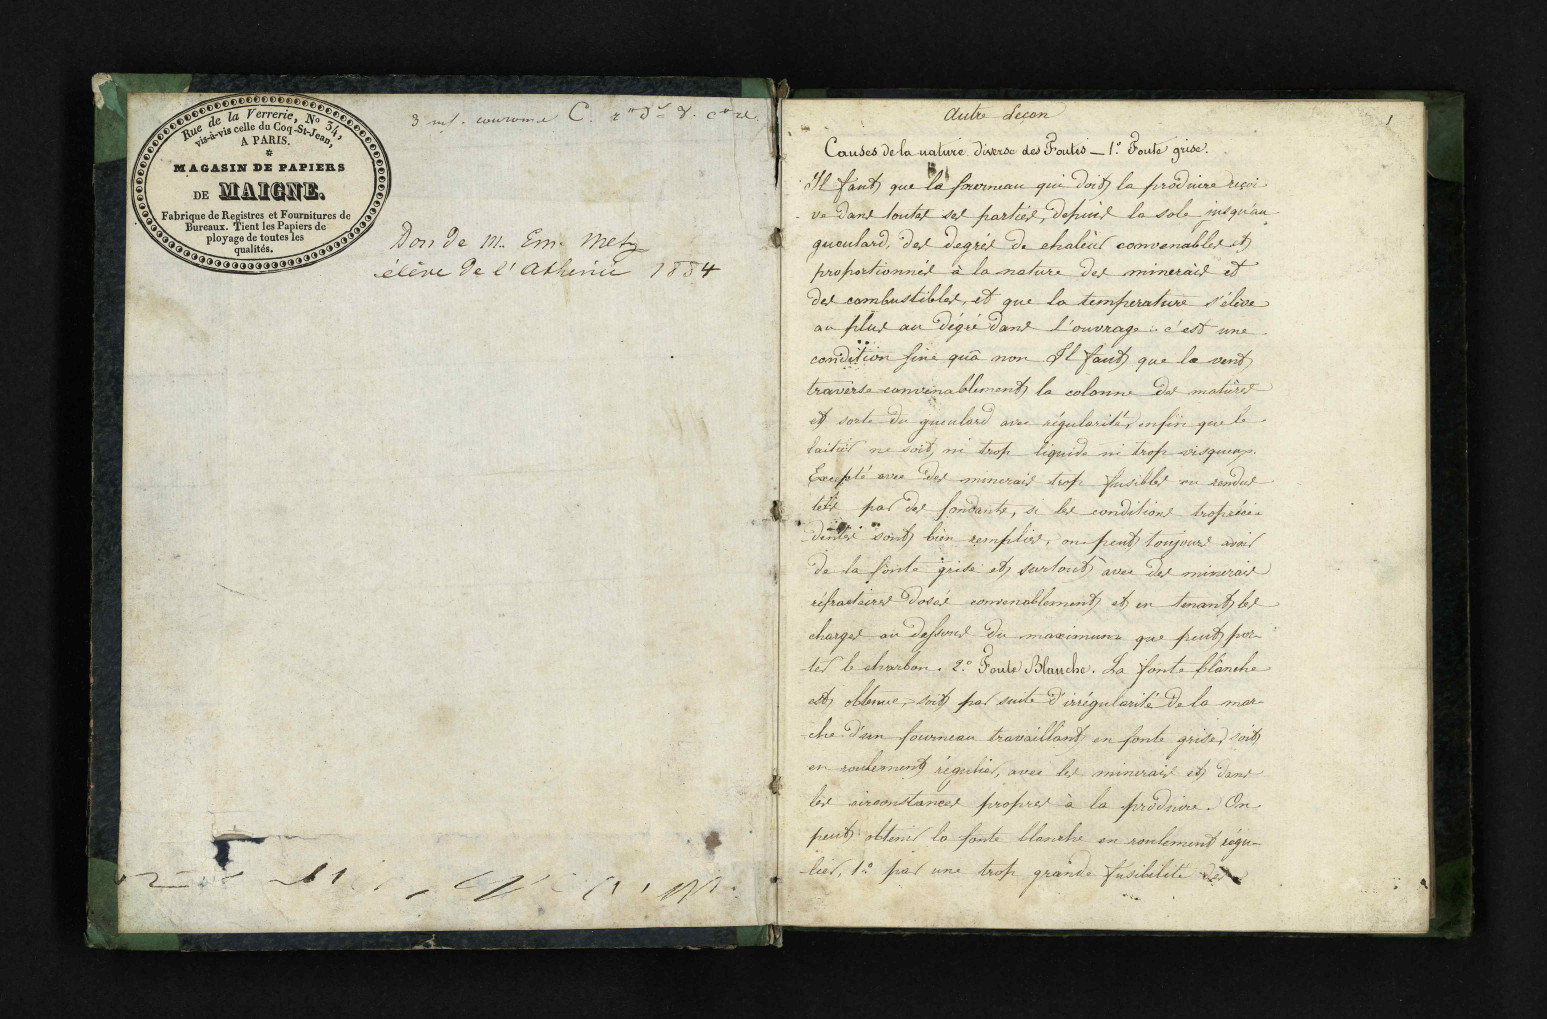 Rue de la Verrerie, N° 34,
vis-à-vis celle du Coq-St-Jean,
A PARIS.
*
MAGASIN DE PAPIERS
DE MAIGNE.
Fabrique de Registres et Fournitures de
Bureaux. Tient les Papiers de
ployage de toutes les
qualités.
3 couronne C.
Don de M. Em. Metz
élève de l'athénée 1854
autre Leçon
1
Causes de la nature diverse des Fontes — 1.° Fonte grise.
Il faut que le fourneau qui doit la produire reçoi-
ve dans toutes ses parties, depuis la sole jusqu'au
gueulard, des degrés de chaleur convenables et
proportionnés à la nature des minerais et
des combustibles, et que la temperature s'élève
au plus au dégré dans l'ouvrage : c'est une
condition sine quâ non Il faut que le vent
traverse convenablement la colonne des matières
et sorte du gueulard avec régularité, enfin que le
laitier ne soit, ni trop liquide ni trop visqueux.
Excepté avec des minerais trop fusibles ou rendus
tels par des fondants, si les conditions
dentes sont bien remplies, on peut toujours avoir
de la fonte grise et surtout avec des minerais
réfractaires dosés convenablement et en tenant les
charges au dessous du maximum que peut por-
ter le charbon. 2.° Fonte Blanche. La fonte blanche
est obtenue, soit par suite d'irrégularité de la mar-
che d'un fourneau travaillant en fonte grise, soit
en roulement régulier, avec les minerais et dans
les circonstances propres à la produire. On
peut obtenir la fonte blanche en roulement régu-
lier, 1.° par une trop grande fusibilité des